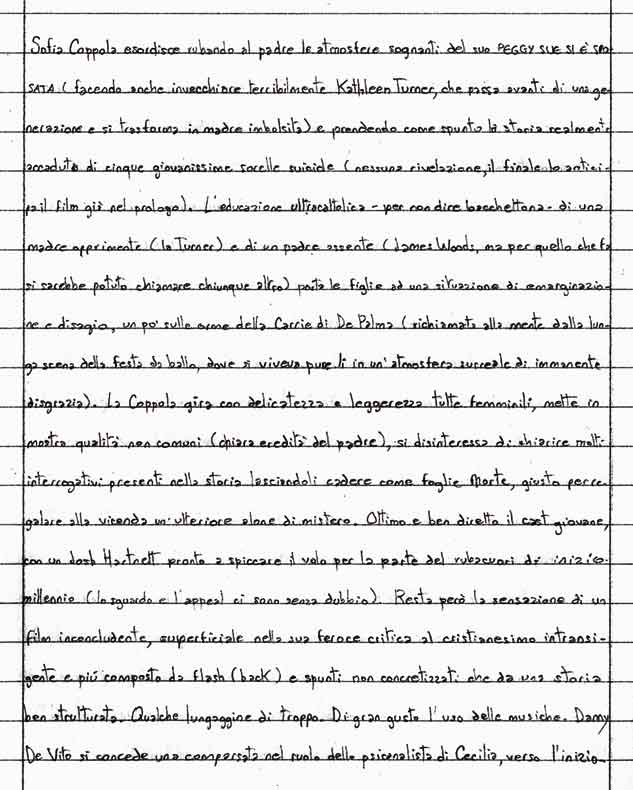 Sofia Coppola esordisce rubando al padre le atmosfere sognanti del suo PEGGY SUE SI È SPO-
SATA (facendo anche invecchiare terribilmente Kathleen Turner, che passa avanti di una ge-
nerazione e si trasforma in madre imbolsita) e prendendo come spunto la storia realmente
accaduta di cinque giovanissime sorelle suicide (nessuna rivelazione, il finale lo antici-
pa il film già nel prologo). L'educazione ultracattolica - per non dire bacchettona - di una
madre opprimente (la Turner) e di un padre assente (James Woods, ma per quello che fa
si sarebbe potuto chiamare chiunque altro) porta le figlie ad una situazione di emarginazio-
ne e disagio, un po' sulle orme della Carrie di De Palma (richiamata alla mente dalla lun-
ga scena della festa da ballo, dove si viveva pure lì in un'atmosfera surreale di immanente
disgrazia). La Coppola gira con delicatezza e leggerezza tutte femminili, mette in
mostra qualità non comuni (chiara eredità del padre), si disinteressa di chiarire molti
interrogativi presenti nella storia lasciandoli cadere come foglie morte, giusto per re-
galare alla vicenda un'ulteriore alone di mistero. Ottimo e ben diretto il cast giovane,
con un Josh Hartnett pronto a spiccare il volo per la parte del rubacuori di inizio
millennio (lo sguardo e l'appeal ci sono senza dubbio). Resta però la sensazione di un
film inconcludente, superficiale nella sua feroce critica al cristianesimo intransi-
gente e più composto da flash (back) e spunti non concretizzati che da una storia
ben strutturata. Qualche lungaggine di troppo. Di gran gusto l'uso delle musiche. Danny
De Vito si concede una comparsata nel ruolo dello psicanalista di Cecilia, verso l'inizio.